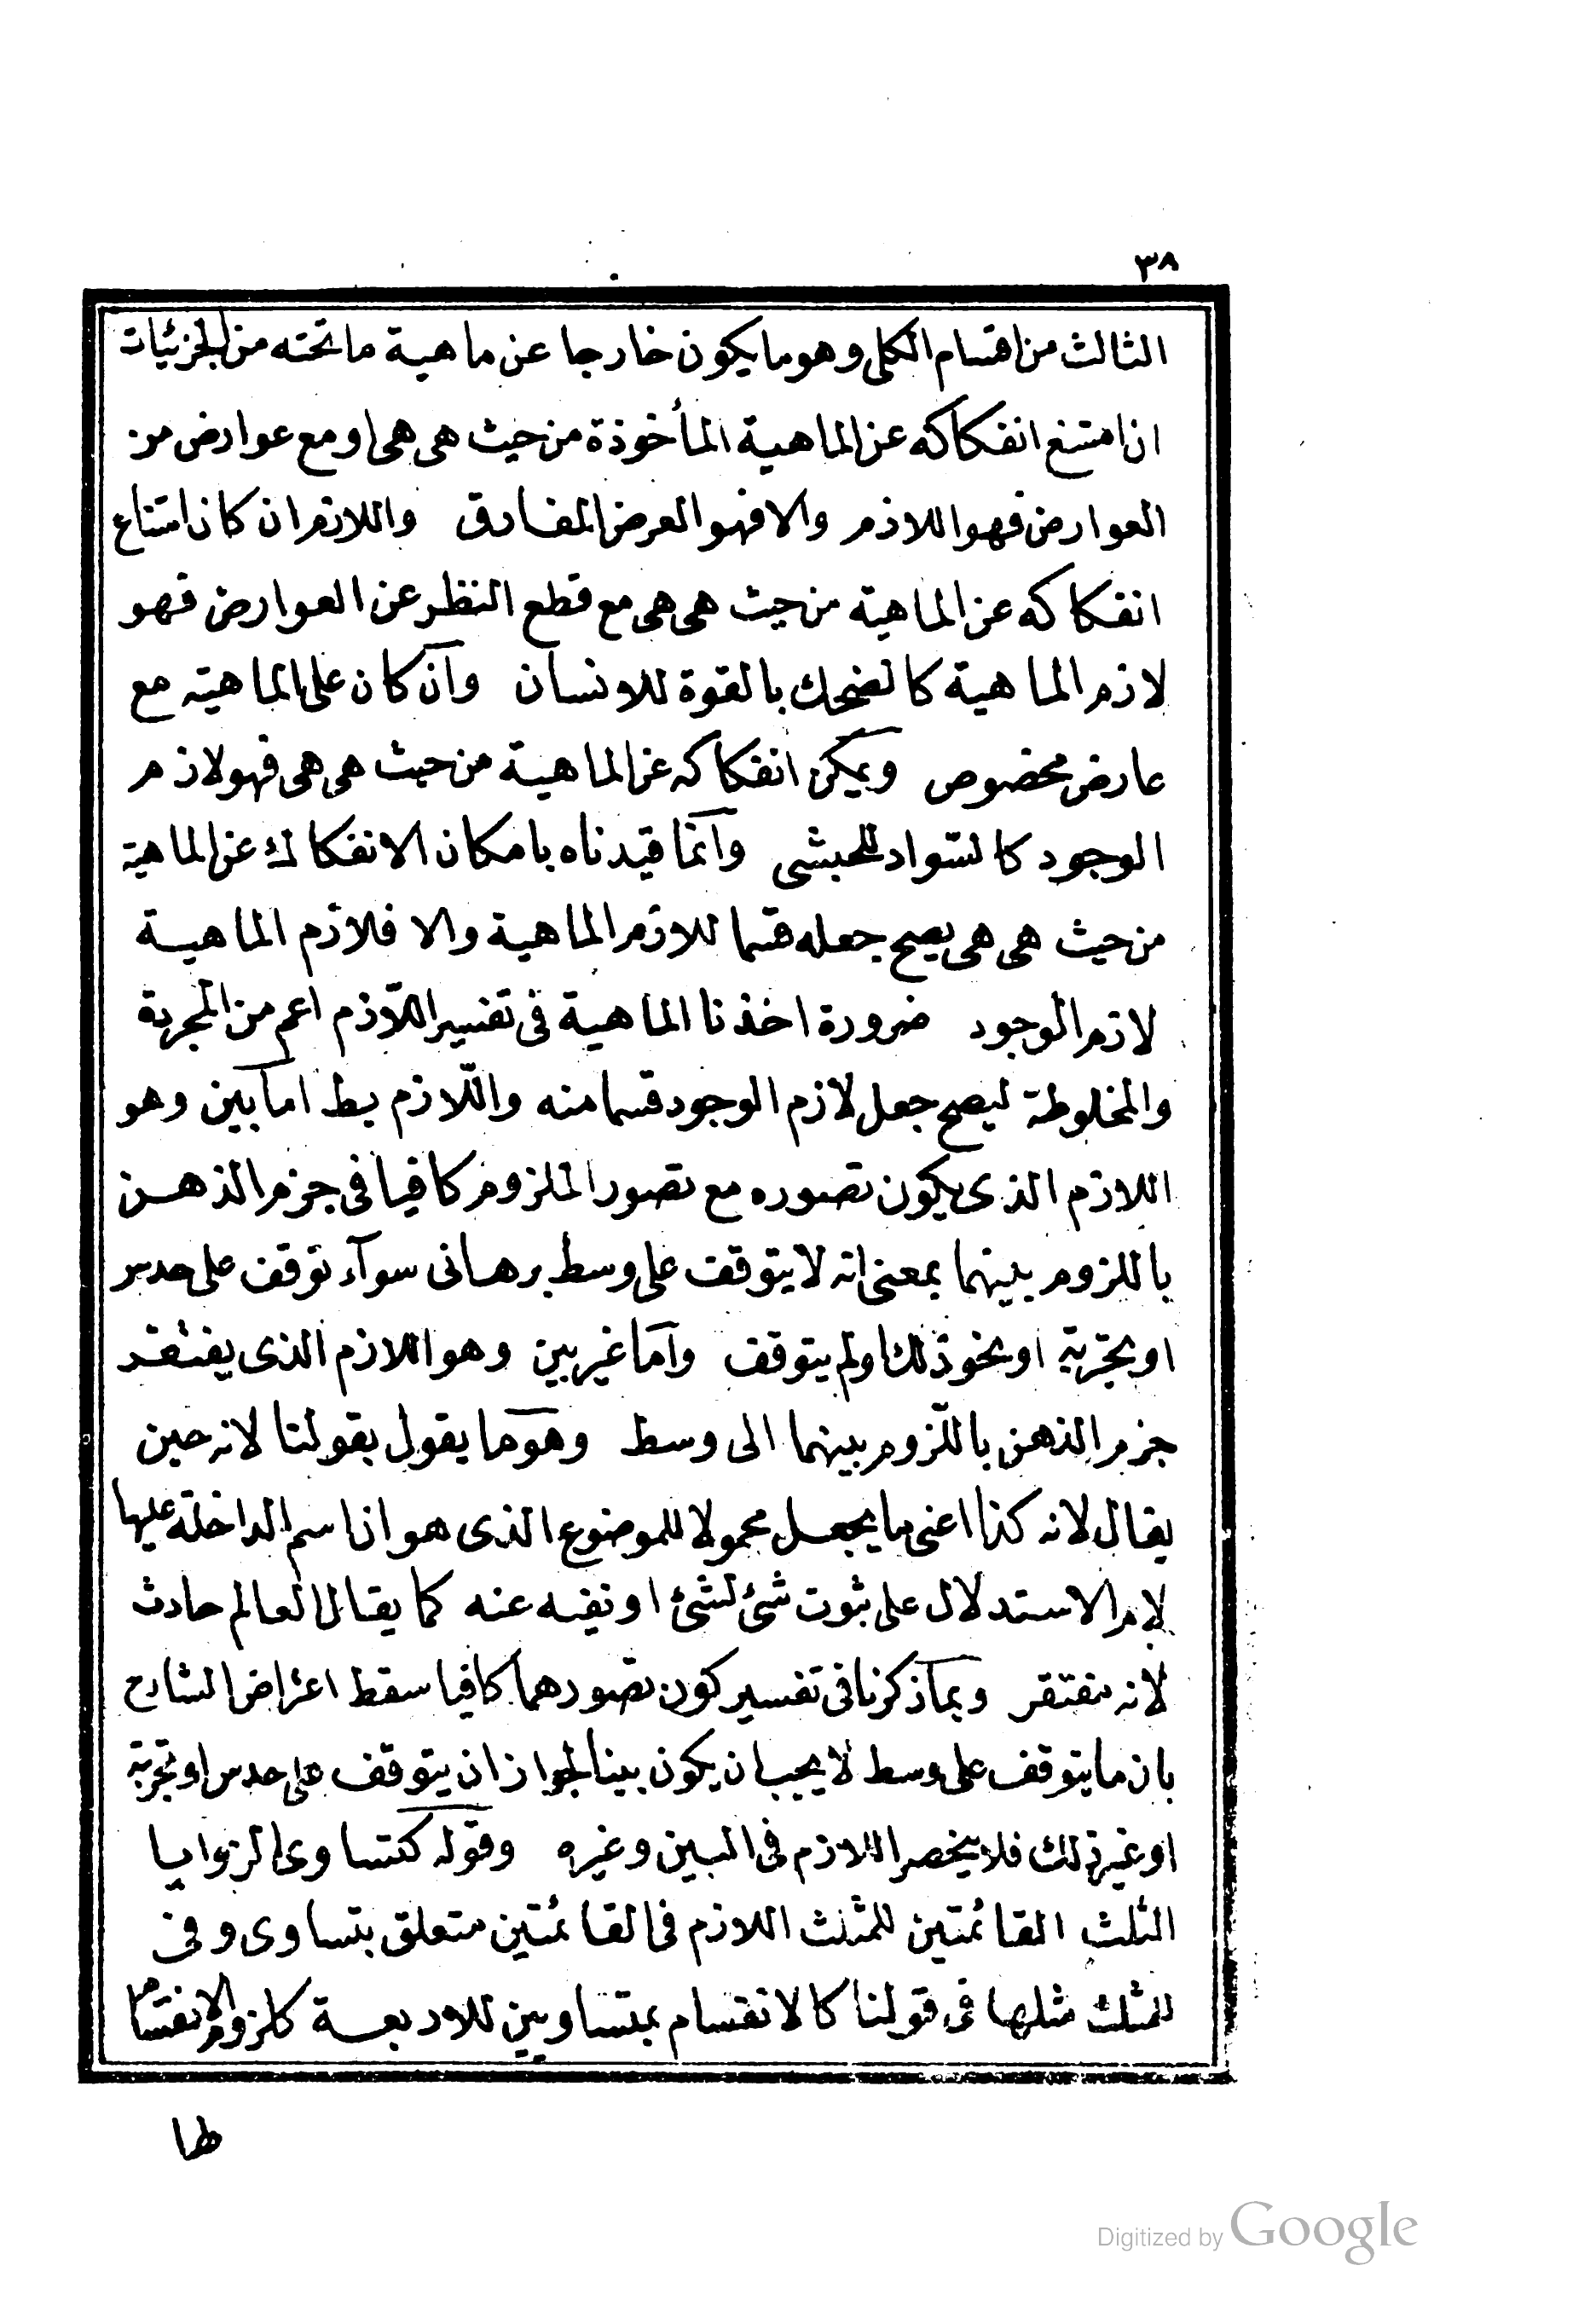 ٣٨
الثالث من اقسام الكلى وهو ما يكون خارجا عن ماهية ما تحته من الجزئيات
ان امتنع انفكاكه عن الماهية المأخوذة من حيث هى هى او مع عوارض من
العوارض فهو اللازم والا فهو العرض المفارق واللازم ان كان امتناع
انفكاكه عن الماهية من حيث هى هى مع قطع النظر عن العوارض فهو
لازم الماهية كالضحك بالقوة للانسان وان كان على الماهية مع
عارض مخصوص ويمكن انفكاكه عن الماهية من حيث هى هى فهو لازم
الوجود كالسواد للحبشى وانما قيدناه بامكان الانفكاك عن الماهية
من حيث هى هى يصح جعله قسما للازم الماهية والا فلازم الماهية
لازم الوجود ضرورة اخذنا الماهية فى تفسير اللازم اعم من المجردة
والمخلوطة ليصح جعل لازم الوجود قسما منه واللازم بط اما بين وهو
اللازم الذى يكون تصوره مع تصور الملزوم كافيا فى جزم الذهن
باللزوم بينهما بمعنى انه لا يتوقف على وسط برهانى سوآء توقف على حدس
او تجربة او نحو ذلك او لم يتوقف واما غير بين وهو اللازم الذى يفتقر
جزم الذهن باللزوم بينهما الى وسط وهو ما يقول بقولنا لانه حين
يقال لانه كذا اعنى ما يجعل محمولا للموضوع الذى هو اذا اسم الداخلة عليها
لام الاستدلال على ثبوت شئ لشئ او نفيه عنه كما يقال العالم حادث
لانه مفتقر وبما ذكرنا فى تفسير كون تصورهما كافيا سقط اعتراض الشارح
بان ما يتوقف على وسط لا يجب ان يكون بينا لجواز ان يتوقف على حدس او تجربة
او غير ذلك فلا ينحصر اللازم فى البين وغيره وقوله كتساوى الزوايا
الثلث القائمتين للمثلث اللازم فى القائمتين متعلق بتساوى وفى
للمثلث مثلها فى قولنا كالانقسام بمتساويين للاربعة كلزوم الانقسام
لها
Digitized by Google